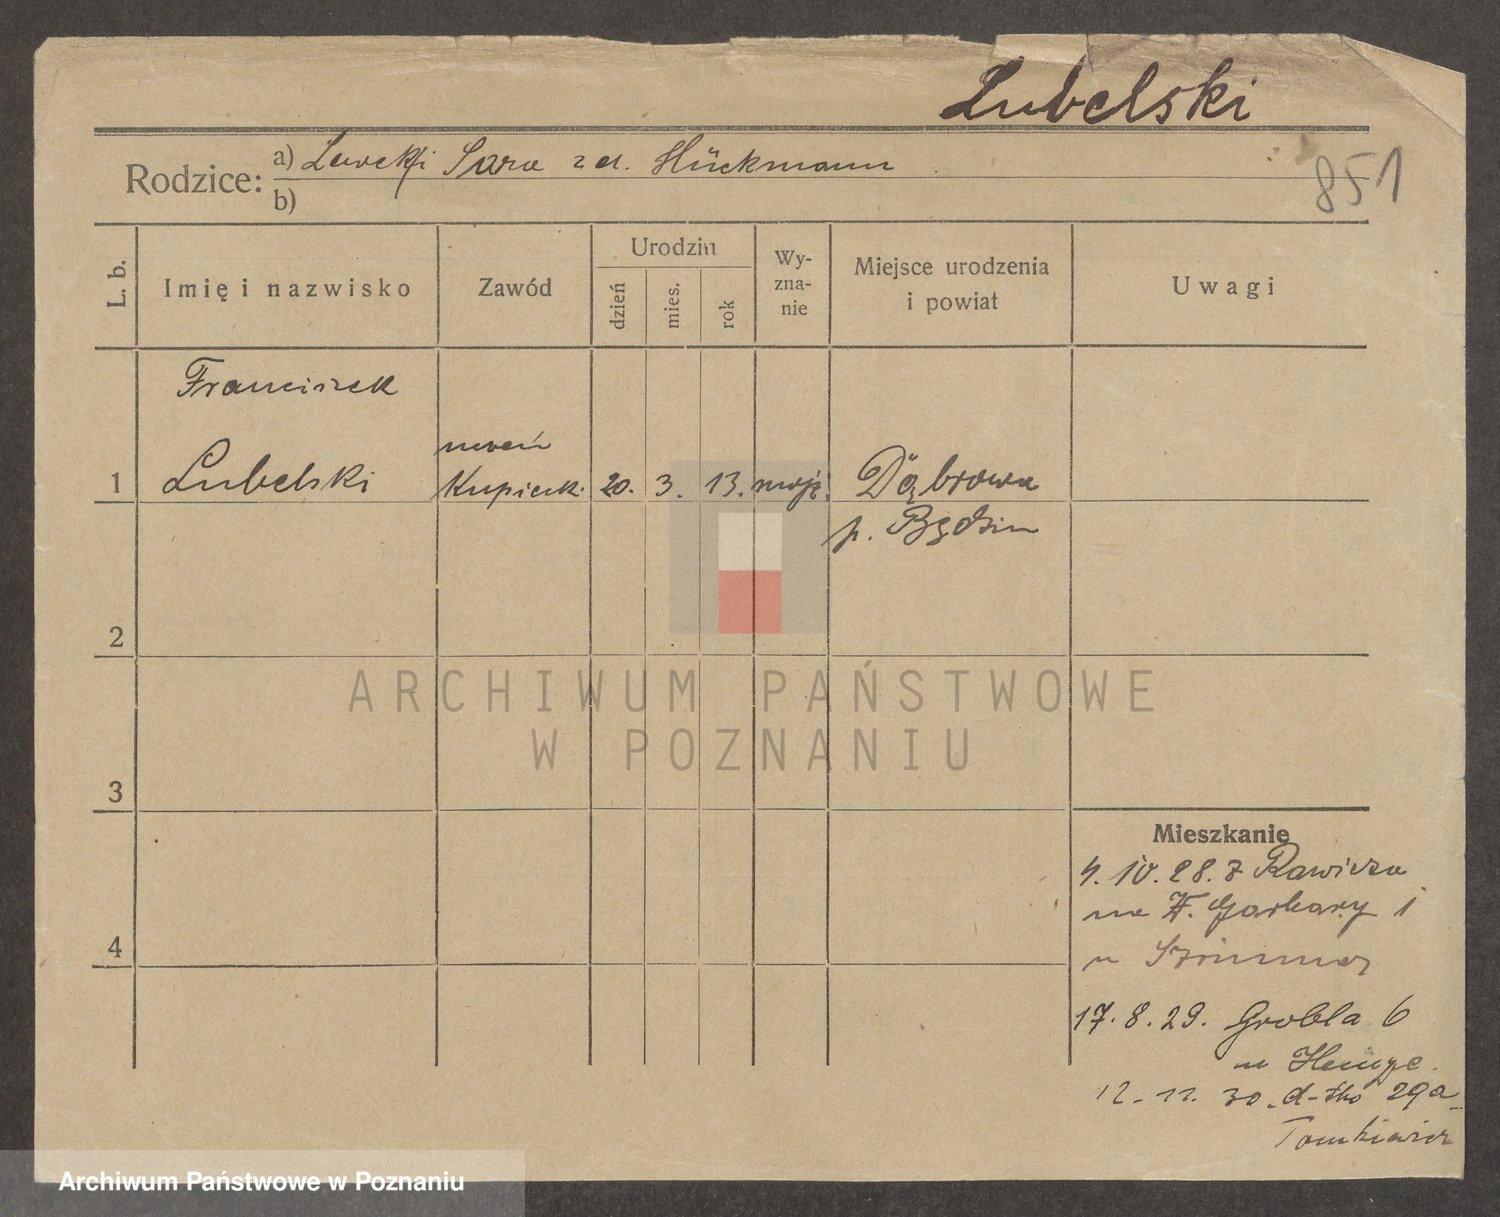 Lubelski
851
Rodzice: a) Sara z d. Hückmann
b)
L. b.
Imię i nazwisko
Zawód
Urodzin
dzień
mies.
rok
Wy-
zna-
nie
Miejsce urodzenia
i powiat
Uwagi
Franciszek
1 Lubelski
uczeń
Kupieck. 20. 3. 13. mojż. Dąbrowa
p. Będzin
2
3
4
Mieszkanie
4. 10. 28. z Rawicza
na W. Garbary 1
u
17. 8. 29. Grobla 6
u
12. 11. 30. d-tto 29a
Tomkiewicz
ARCHIWUM PAŃSTWOWE
W POZNANIU
Archiwum Państwowe w Poznaniu